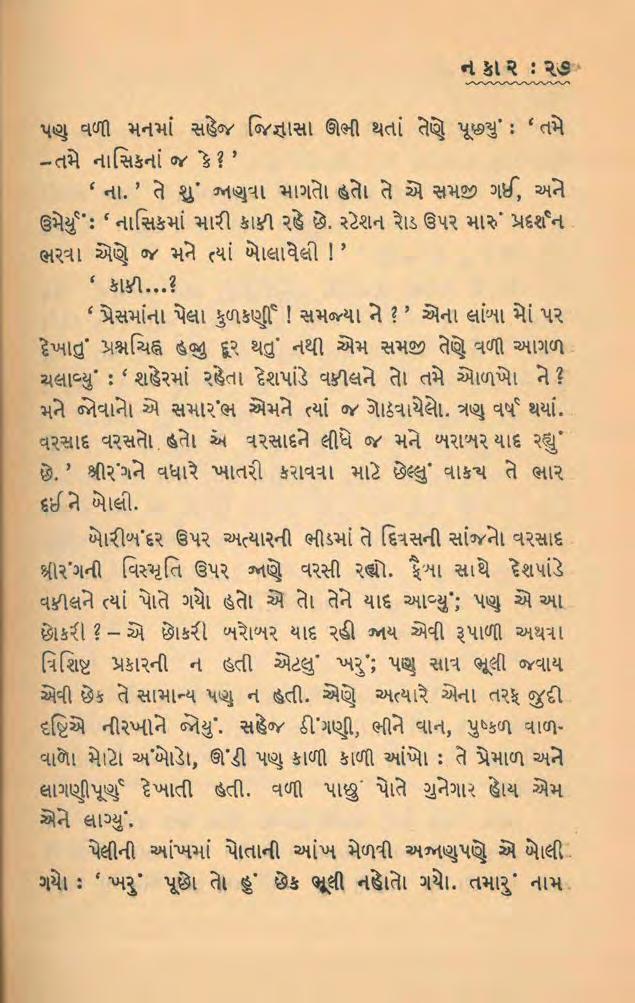 નકાર : ૨૭
પણ વળી મનમાં સહેજ જિજ્ઞાસા ઊભી થતાં તેણે પૂછ્યું : ‘ તમે
–તમે નાસિકનાં જ કે ? ’
‘ ના. ’ તે શું જાણવા માગતો હતો તે એ સમજી ગઈ, અને
ઉમેર્યું : ‘ નાસિકમાં મારી કાકી રહે છે. સ્ટેશન રોડ ઉપર મારું પ્રદર્શન
ભરવા એણે જ મને ત્યાં બોલાવેલી ! ’
‘ કાકી...?
‘ પ્રેસમાંના પેલા કુળકર્ણી ! સમજ્યા ને ? ’ એના લાંબા મોં પર
દેખાતું પ્રશ્નચિહ્ન હજુ દૂર થતું નથી એમ સમજી તેણે વળી આગળ
ચલાવ્યું : ‘ શહેરમાં રહેતા દેશપાંડે વકીલને તો તમે ઓળખો ને ?
મને જોવાનો એ સમારંભ એમને ત્યાં જ ગોઠવાયેલો. ત્રણ વર્ષ થયાં.
વરસાદ વરસતો હતો એ વરસાદને લીધે જ મને બરાબર યાદ રહ્યું
છે. ’ શ્રીરંગને વધારે ખાતરી કરાવવા માટે છેલ્લું વાક્ય તે ભાર
દઈ ને બોલી.
બોરીબંદર ઉપર અત્યારની ભીડમાં તે દિવસની સાંજનો વરસાદ
શ્રીરંગની વિસ્મૃતિ ઉપર જાણે વરસી રહ્યો. ફૈબા સાથે દેશપાંડે
વકીલને ત્યાં પોતે ગયો હતો એ તો તેને યાદ આવ્યું; પણ એ આ
છોકરી ? – એ છોકરી બરોબર યાદ રહી જાય એવી રૂપાળી અથવા
વિશિષ્ટ પ્રકારની ન હતી એટલું ખરું; પણ સાવ ભૂલી જવાય
એવી છેક તે સામાન્ય પણ ન હતી. એણે અત્યારે એના તરફ જુદી
દૃષ્ટિએ નીરખીને જોયું. સહેજ ઠીંગણી, ભીને વાન, પુષ્કળ વાળ-
વાળો મોટો અંબોડો, ઊંડી પણ કાળી કાળી આંખો : તે પ્રેમાળ અને
લાગણીપૂર્ણ દેખાતી હતી. વળી પાછું પોતે ગુનેગાર હોય એમ
એને લાગ્યું.
પેલીની આંખમાં પોતાની આંખ મેળવી અજાણપણે એ બોલી
ગયો : ‘ ખરું પૂછો તો હું છેક ભૂલી નહોતો ગયો. તમારું નામ